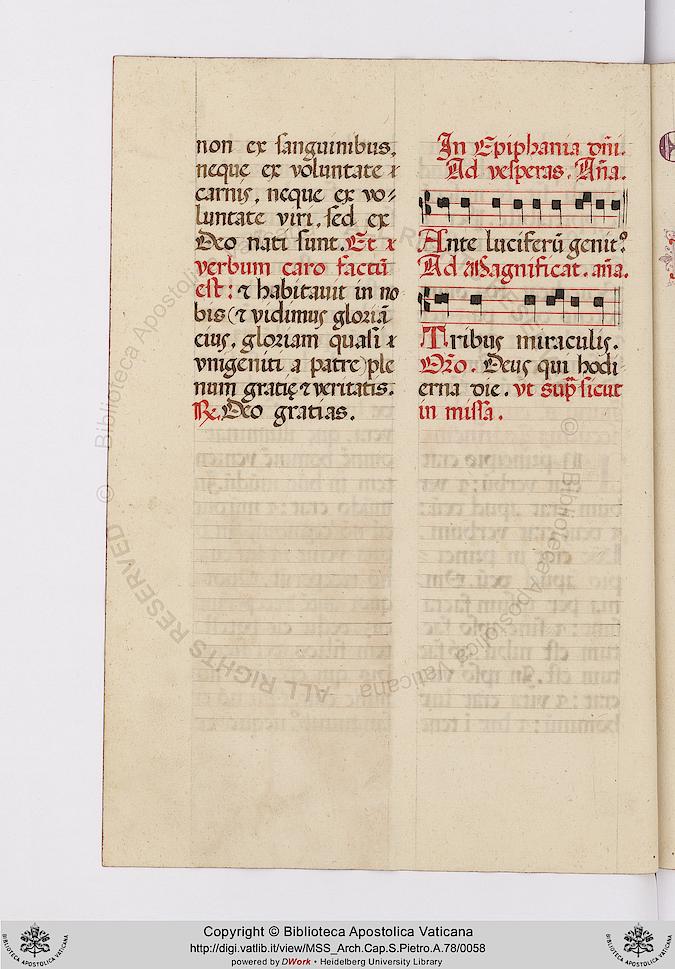 non ex sanguinibus,
neque ex voluntate
carnis, neque ex vo-
luntate viri, sed ex
Deo nati sunt. Et
verbum caro factū
est: ⁊ habitauit in no
bis (⁊ vidimus gloriā
eius, gloriam quasi
vnigeniti a patre) ple
num gratię ⁊ veritatis.
℟. Deo gratias.
In Epiphania dn̄i.
Ad vesperas. Añа.
Ante luciferū genitꝰ
Ad Magnificat. an̄a.
Tribus miraculis.
Or̄o. Deus qui hodi
erna die. vt sup̄ sicut
in missa.
© Biblioteca Apostolica Vaticana
ALL RIGHTS RESERVED
Copyright © Biblioteca Apostolica Vaticana
http://digi.vatlib.it/view/MSS_Arch.Cap.S.Pietro.A.78/0058
powered by DWork • Heidelberg University Library
BIBLIOTECA APOSTOLICA VATICANA
BIBLIOTECA APOSTOLICA VATICANA